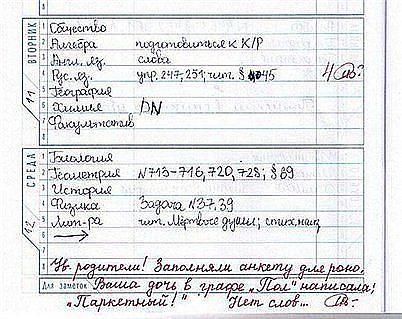 ВТОРНИК
11
1 Общество
2 Алгебра подготовиться к К/Р
3 Англ. яз. слова
4 Рус. яз. упр. 247; 251; чит. § 45
5 География
6 Химия DN
7 Факультатив
8
4
СРЕДА
12
1 Биология
2 Геометрия N 713-716, 720, 728; § 89
3 История
4 Физика Задача N 37, 39
5 Лит-ра чит. Мёртвые души;
6
7
8 Ув. родители! Заполняли анкету для роно.
Для заметок Ваша дочь в графе "Пол" написала:
"Паркетный!" Нет слов...